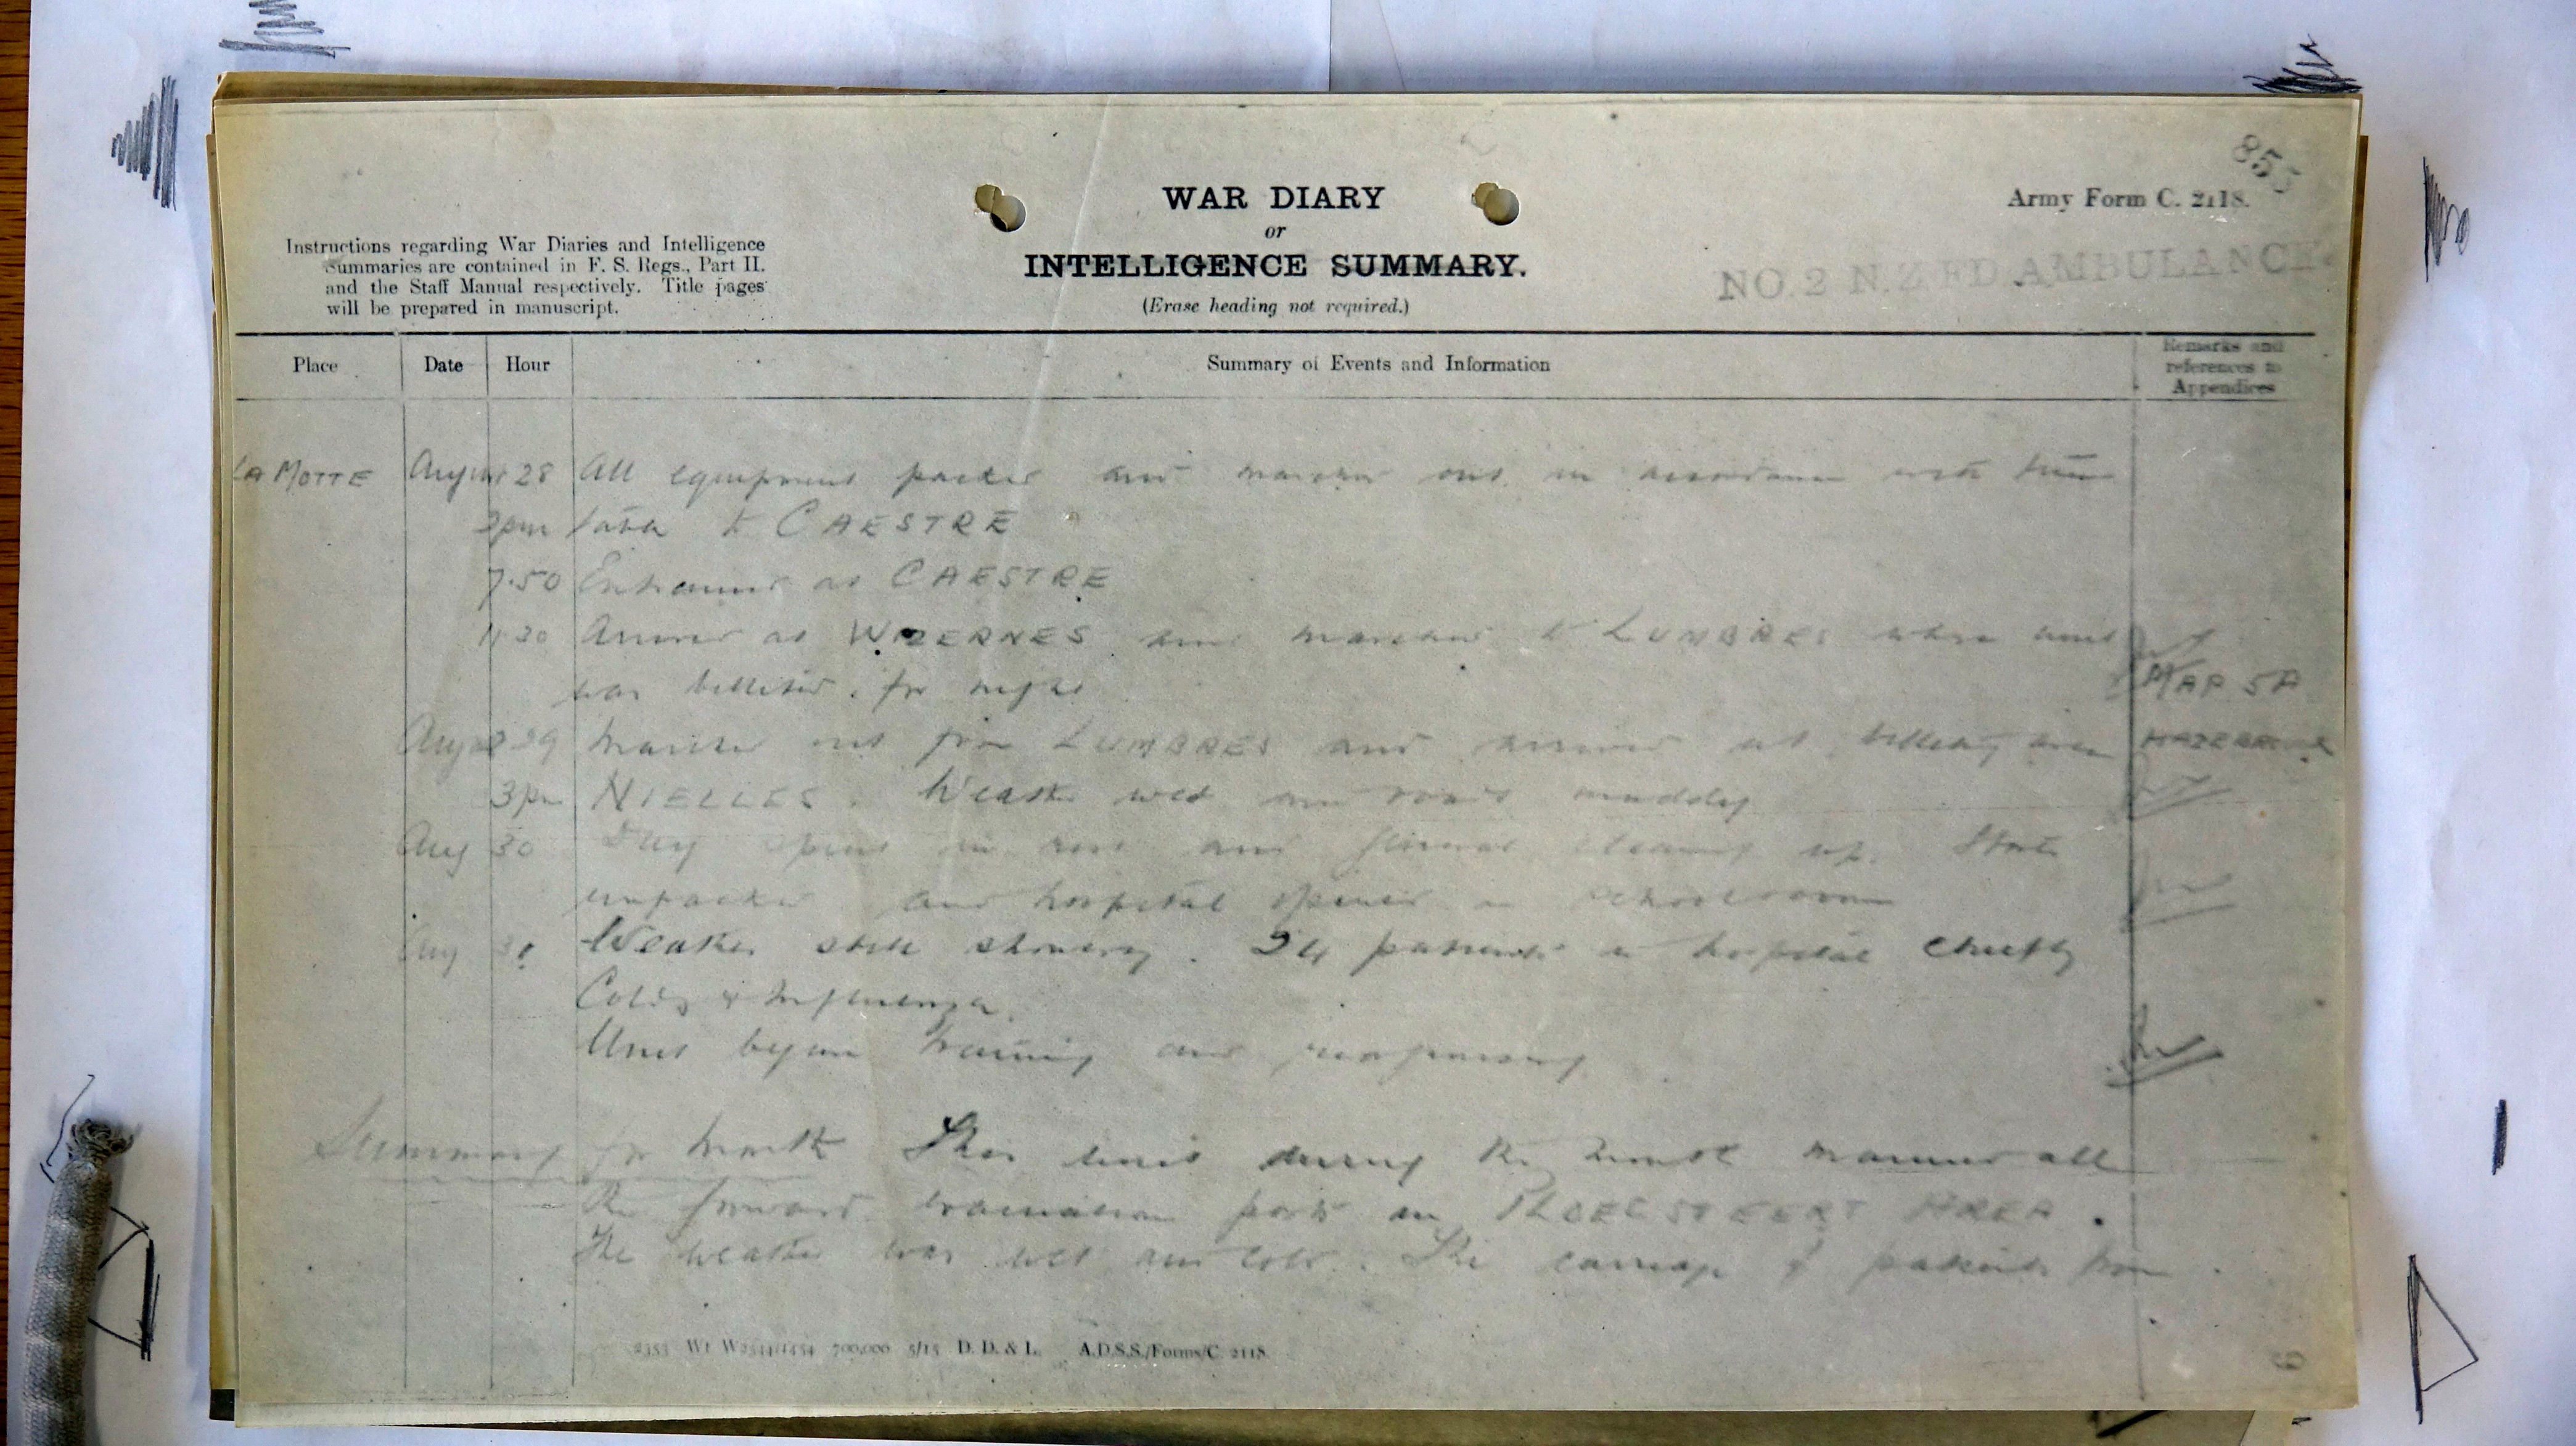 855
WAR DIARY
or
INTELLIGENCE SUMMARY.
(Erase heading not required.)
Army Form C. 2118.
NO. 2 N.Z. FD AMBULANCE.
Instructions regarding War Diaries and Intelligence
Summaries are contained in F. S. Regs., Part II.
and the Staff Manual respectively. Title pages
will be prepared in manuscript.
Place Date Hour Summary of Events and Information Remarks and references to Appendices
LA MOTTE August 28 All equipment packed and marched out in accordance with time
2pm table to CAESTRE
7.50 Entrained at CAESTRE
11.30 Arrived at WIZERNES and marched to LUMBRES where unit
was billeted for night MAP 5A
Aug 29 Marched out from LUMBRES and arrived at billeting area HAZEBROUCK
3pm NIELLES. Weather wet and roads muddy
Aug 30 Day spent in rest and general cleaning up. Stores
unpacked and hospital opened in schoolroom
Aug 31 Weather still showery. 24 patients in hospital chiefly
Colds & Influenza.
Unit began training and
Summary for Month This unit during the month manned all
the forward evacuation posts in PLOEGSTEERT AREA.
The weather was wet and cold. The carriage of patients from
2353 Wt W2544/1454 700,000 5/15 D. D. & L. A.D.S.S./Forms/C. 2118.